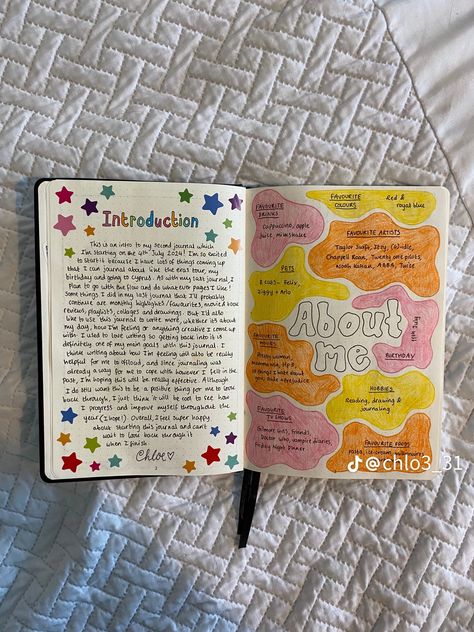 Introduction
This is an intro to my second journal which
I'm starting on the 4th July 2024! I'm so excited
to start it because I have lots of things coming up
that I can journal about like the eras tour, my
birthday and going to Cyprus! As with my last journal, I
plan to go with the flow and do whatever pages I like!
Some things I did in my last journal that I'll probably
continue are monthly highlights/favourites, movie & book
reviews, playlists, collages and drawings. But I'd also
like to use this journal to write more whether it's about
my day, how I'm feeling or anything creative I come up
with. I used to love writing so getting back into it is
definitely one of my main goals with this journal. I
think writing about how I'm feeling will also be really
helpful for me to offload, and since journaling was
already a way for me to cope with however I felt in the
past, I'm hoping this will be really effective. Although
I do still want this to be a positive thing for me to look
back through, I just think it will be cool to see how
I progress and improve myself throughout the
year (I hope!). Overall, I feel super happy
about starting this journal and can't
wait to look back through it
when I finish
Chloe
FAVOURITE
DRINKS
Cappuccino, apple
juice, milkshake
FAVOURITE
COLOURS
Red &
royal blue
FAVOURITE ARTISTS
Taylor Swift,
Chappell Roan, Twenty one pilots,
Noah Kahan, ABBA, Twice
PETS
3 cats - Felix,
Ziggy + Arlo
About
me
11th July
BIRTHDAY
FAVOURITE
MOVIES
Pretty woman,
10 things I hate about
you, Pride + prejudice
HOBBIES
Reading, drawing &
journaling
FAVOURITE
TV SHOWS
Gilmore Girls, Friends,
Doctor Who, Vampire diaries,
Friday Night Dinner
FAVOURITE FOODS
Pasta, ice-cream,
@chlo3_31